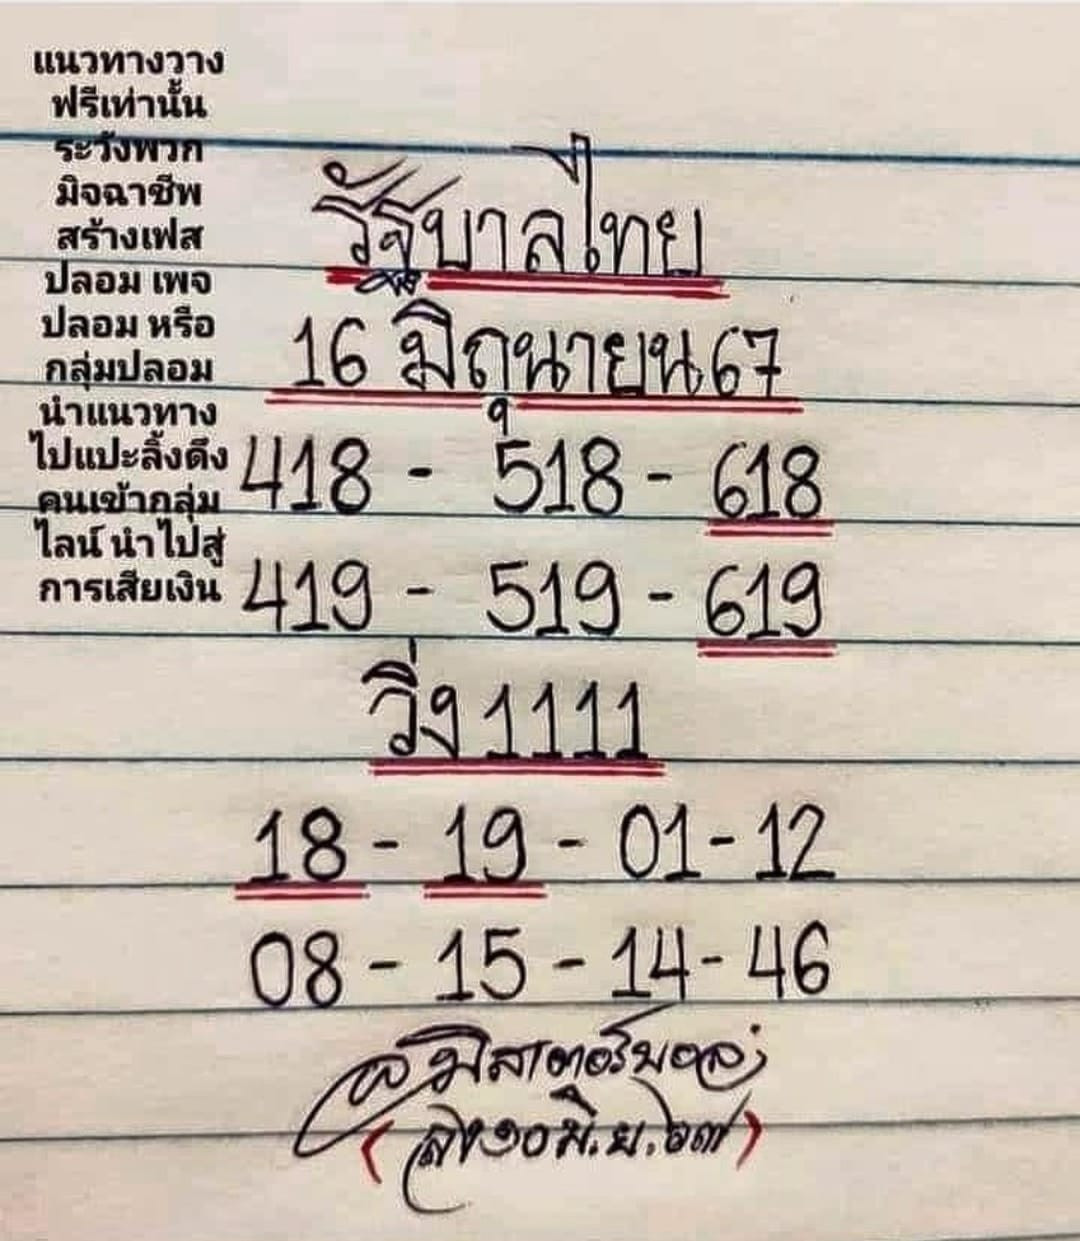 แนวทางวาง
ฟรีเท่านั้น
ระวังพวก
มิจฉาชีพ
สร้างเฟส
ปลอม เพจ
ปลอม หรือ
กลุ่มปลอม
นำแนวทาง
ไปแปะลิ้งดึง
คนเข้ากลุ่ม
ไลน์ นำไปสู่
การเสียเงิน
รัฐบาลไทย
16 มิถุนายน67
418 - 518 - 618
419 - 519 - 619
วิ่ง 1111
18 - 19 - 01 - 12
08 - 15 - 14 - 46
มิสเตอร์บอล
๑๐ มิ.ย.๖๗